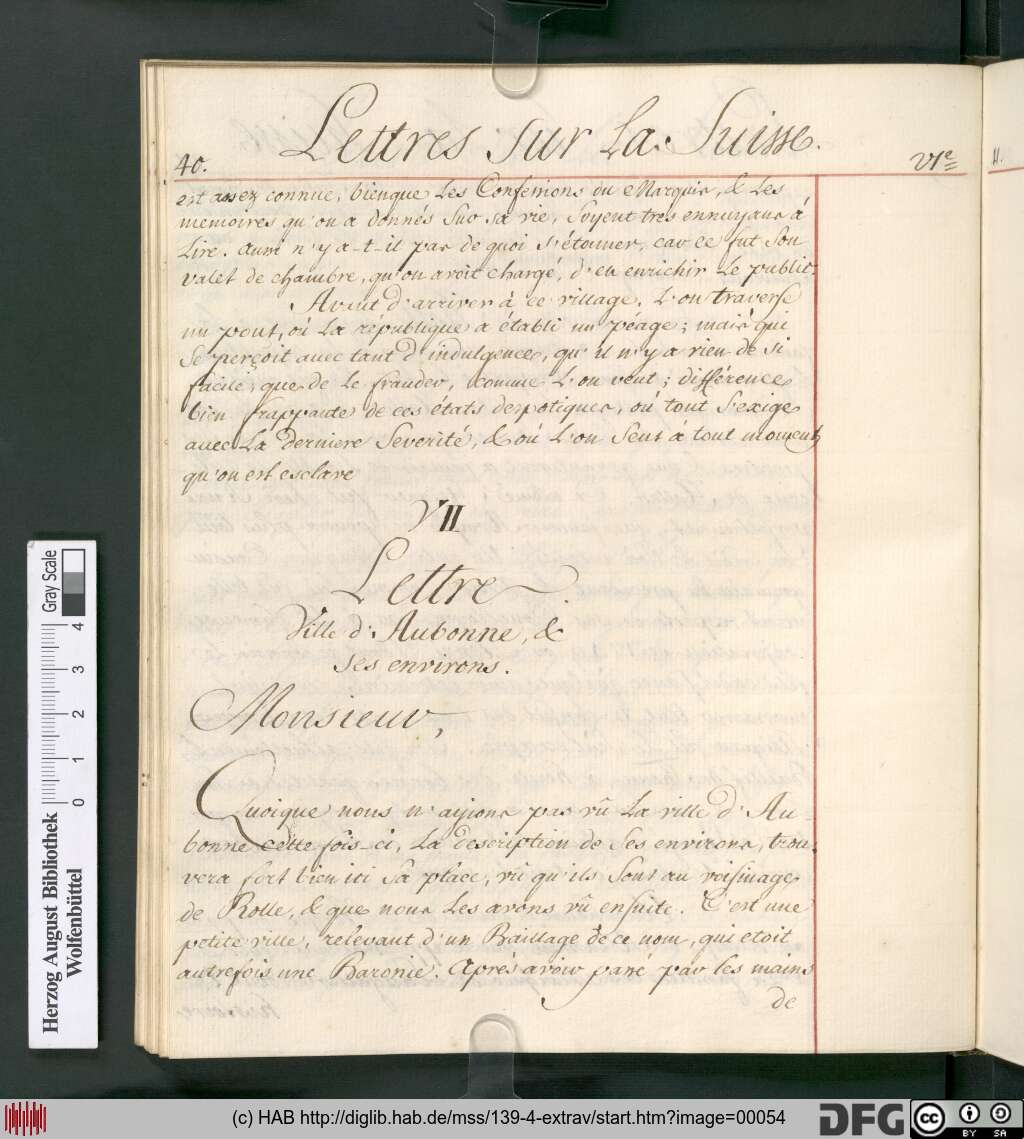 Lettres sur la Suisse.
40.
VI.e
est assez connue, bienque les Confessions du Marquis, & les
memoires qu'on a donnés sur sa vie, soyent trés ennuyans á
lire. Aussi n'y a-t-il pas de quoi s'étonner, car ce fut son
valet de chambre, qu'on avoit chargé, d'en enrichir le public.
Avant d'arriver á ce village, l'on traverse
un pont, oú la république a établi un péage; mais qui
se perçoit avec tant d'indulgence, qu'il n'y a rien de si
facile, que de le frauder, comme l'on veut; différence
bien frappante de ces états despotiques, oú tout s'exige
avec la derniere severité, & oú l'on sent á tout moment,
qu'on est esclave
VII
Lettre.
Ville d'Aubonne, &
ses environs.
Monsieur,
Quoique nous n'ayions pas vû la ville d'Au-
bonne cette fois-ci, la description de ses environs, trou-
vera fort bien ici sa place, vû qu'ils sont au voisinage
de Rolle, & que nous les avons vû ensuite. C'est une
petite ville, relevant d'un Baillage de ce nom, qui etoit
autrefois une Baronie. Aprés avoir passé par les mains
de
Gray Scale
4
3
2
1
0
Herzog August Bibliothek
Wolfenbüttel
(c) HAB http://diglib.hab.de/mss/139-4-extrav/start.htm?image=00054
DFG
cc
BY SA